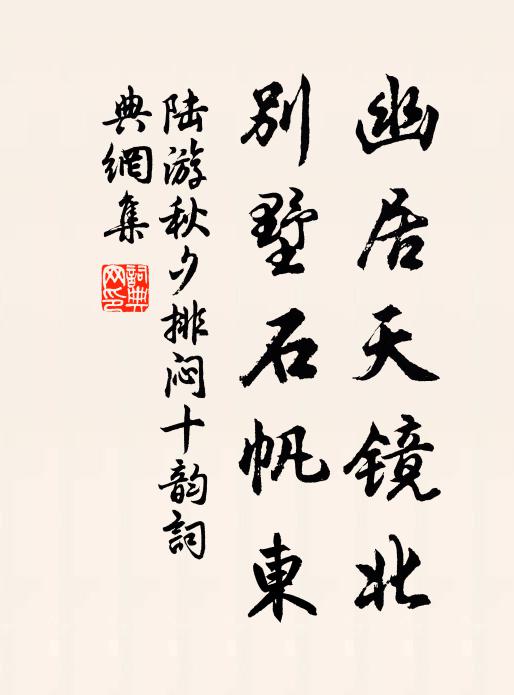 幽居天镜北
别墅石帆東
陆游秋夕排闷十韵詞
典網集
詞典网印